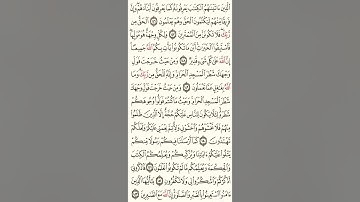 ٱلَّذِينَ ءَاتَيْنَٰهُمُ ٱلْكِتَٰبَ يَعْرِفُونَهُۥ كَمَا يَعْرِفُونَ أَبْنَآءَهُمْ ۖ وَإِنَّ
فَرِيقًا مِّنْهُمْ لَيَكْتُمُونَ ٱلْحَقَّ وَهُمْ يَعْلَمُونَ ١٤٦ ٱلْحَقُّ مِن
رَّبِّكَ ۖ فَلَا تَكُونَنَّ مِنَ ٱلْمُمْتَرِينَ ١٤٧ وَلِكُلٍّ وِجْهَةٌ هُوَ مُوَلِّيهَا ۖ
فَٱسْتَبِقُوا۟ ٱلْخَيْرَٰتِ ۚ أَيْنَ مَا تَكُونُوا۟ يَأْتِ بِكُمُ ٱللَّهُ جَمِيعًا ۚ
إِنَّ ٱللَّهَ عَلَىٰ كُلِّ شَىْءٍ قَدِيرٌ ١٤٨ وَمِنْ حَيْثُ خَرَجْتَ فَوَلِّ
وَجْهَكَ شَطْرَ ٱلْمَسْجِدِ ٱلْحَرَامِ ۖ وَإِنَّهُۥ لَلْحَقُّ مِن رَّبِّكَ ۗ وَمَا
ٱللَّهُ بِغَٰفِلٍ عَمَّا تَعْمَلُونَ ١٤٩ وَمِنْ حَيْثُ خَرَجْتَ فَوَلِّ وَجْهَكَ
شَطْرَ ٱلْمَسْجِدِ ٱلْحَرَامِ ۚ وَحَيْثُ مَا كُنتُمْ فَوَلُّوا۟ وُجُوهَكُمْ
شَطْرَهُۥ لِئَلَّا يَكُونَ لِلنَّاسِ عَلَيْكُمْ حُجَّةٌ إِلَّا ٱلَّذِينَ ظَلَمُوا۟
مِنْهُمْ فَلَا تَخْشَوْهُمْ وَٱخْشَوْنِى وَلِأُتِمَّ نِعْمَتِى عَلَيْكُمْ وَلَعَلَّكُمْ
تَهْتَدُونَ ١٥٠ كَمَآ أَرْسَلْنَا فِيكُمْ رَسُولًا مِّنكُمْ
يَتْلُوا۟ عَلَيْكُمْ ءَايَٰتِنَا وَيُزَكِّيكُمْ وَيُعَلِّمُكُمُ ٱلْكِتَٰبَ
وَٱلْحِكْمَةَ وَيُعَلِّمُكُم مَّا لَمْ تَكُونُوا۟ تَعْلَمُونَ ١٥١ فَٱذْكُرُونِىٓ
أَذْكُرْكُمْ وَٱشْكُرُوا۟ لِى وَلَا تَكْفُرُونِ ١٥٢ يَٰٓأَيُّهَا ٱلَّذِينَ
ءَامَنُوا۟ ٱسْتَعِينُوا۟ بِٱلصَّبْرِ وَٱلصَّلَوٰةِ ۚ إِنَّ ٱللَّهَ مَعَ ٱلصَّٰبِرِينَ ١٥٣